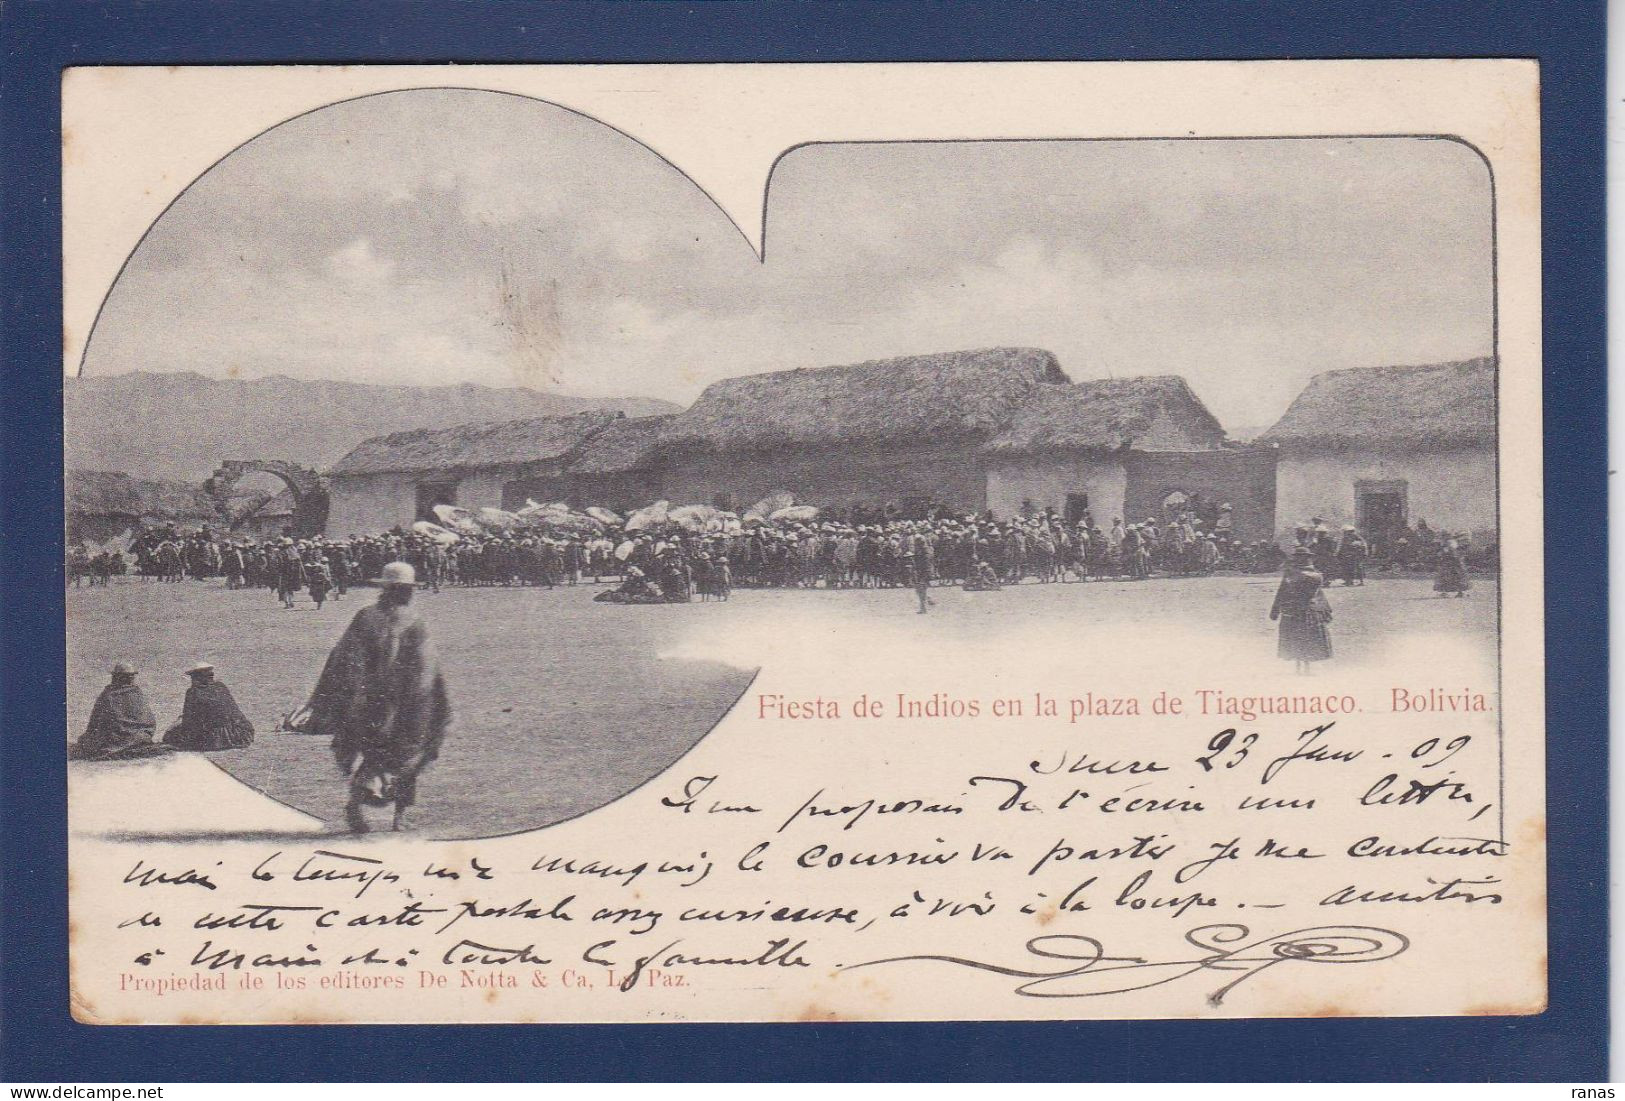 Fiesta de Indios en la plaza de Tiaguanaco. Bolivia.
Sucre 23 Jan - 09
Je me proposais De t'écrire une lettre,
mais le temps me manque le courrier va partir Je me contente
de cette carte postale assez curieuse, à voir à la loupe. — Amitiés
à Marie et à toute la famille.
Propiedad de los editores De Notta & Ca, La Paz.
ranas